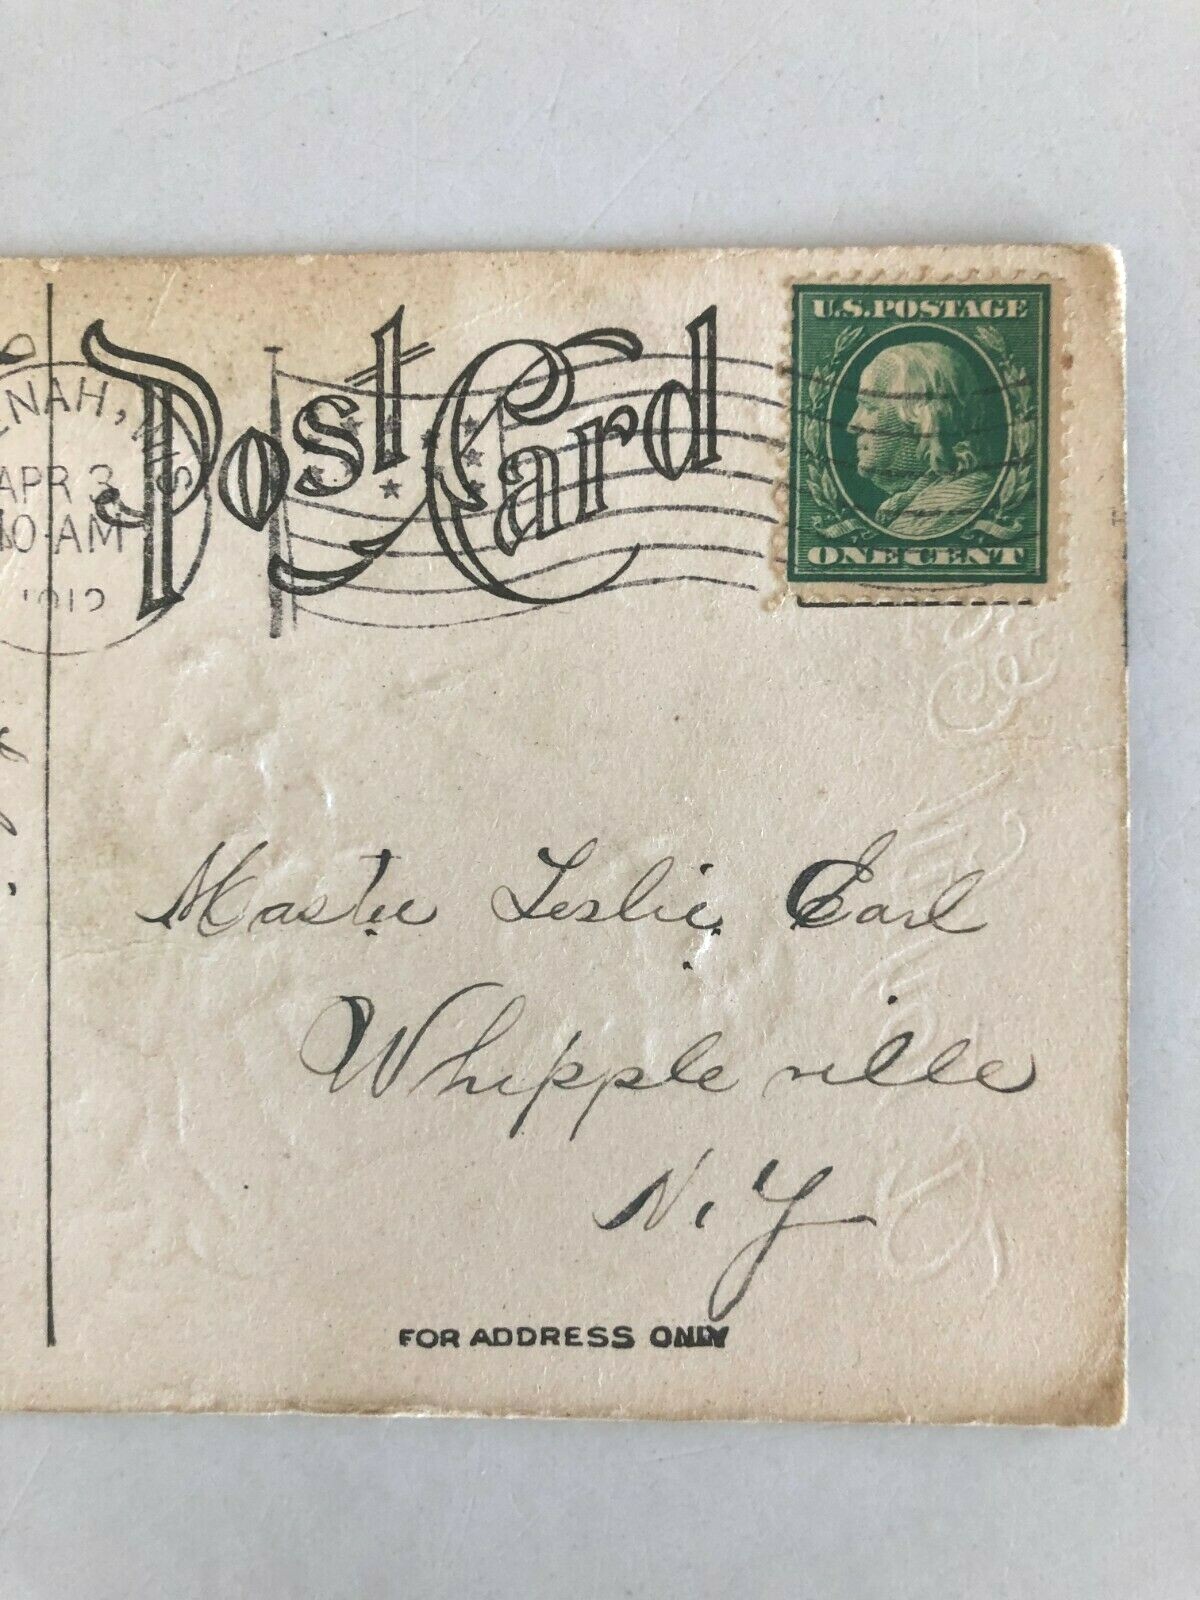 Post Card
U.S. POSTAGE
ONE CENT
ENAH, WIS
APR 3
10 AM
1912
Master Leslie Earl
Whippleville
N.Y
FOR ADDRESS ONLY